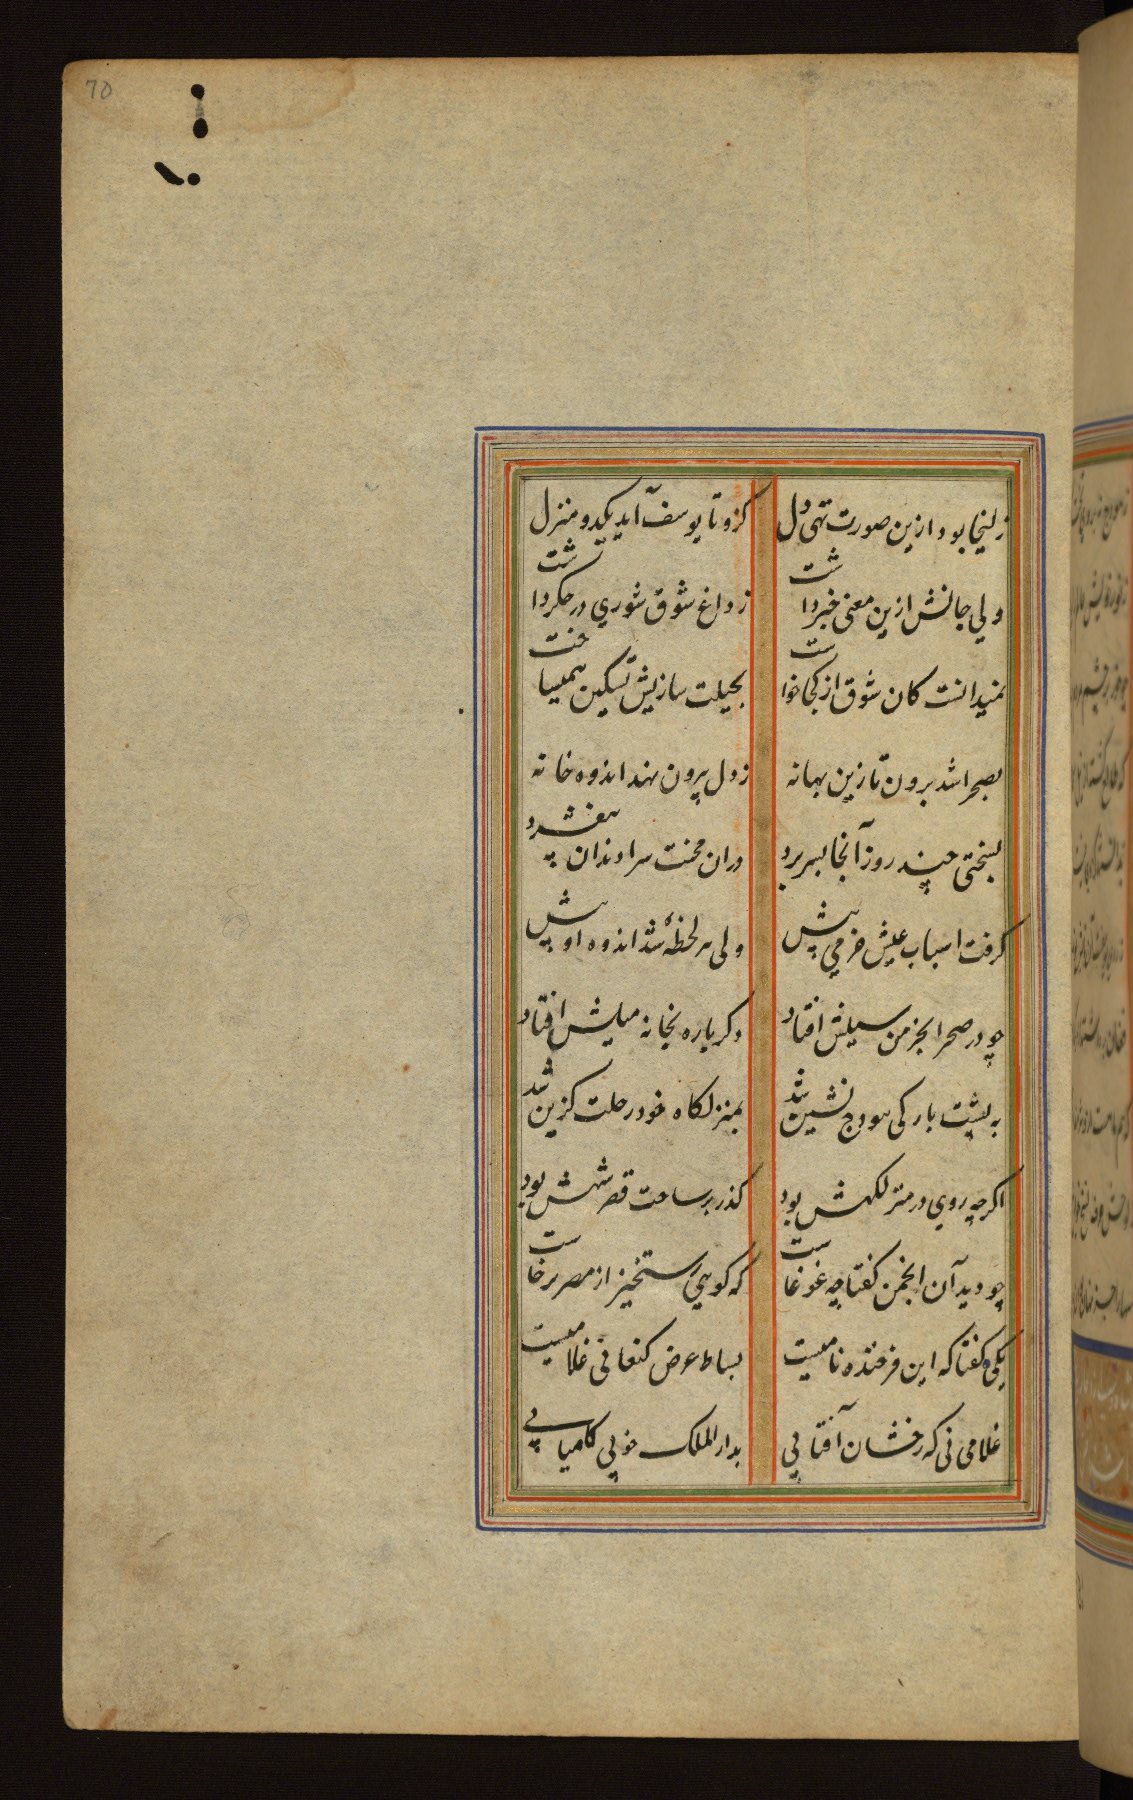 70
زلیخا بود ازین صورت تهی دل کزو تا یوسف آید یکدو منزل
ولی جانش ازین معنی خبر داشت ز داغ شوق شوری در جکر داشت
نمیدانست کان شوق از کجا خواست بحیلت سازیش تسکین همیساخت
بصحرا شد برون تا زین بهانه ز دل بیرون نهد اندوه خانه
بسختی چند روز آنجا بسر برد دران محنت سرا دندان بیفشرد
کرفت اسباب عیش خرمی پیش ولی هر لحظهٔ شد اندوه او بیش
چو در صحرا بخرمن سیلش افتاد دکر باره بخانه میلش افتاد
به پشت بارکی هودج نشین شد بمنزلکاه خود رحلت کزین شد
اکرچه روی در منزلکهش بود کذر بر ساحت قصر شهش بود
چو دید آن انجمن کفتا چه غوغاست که کویی رستخیز از مصر برخاست
یکی کفتا که این فرخنده نامیست بساط عرض کنعانی غلامیست
غلامی نی که رخشان آفتابی بدار الملک خوبی کامیابی